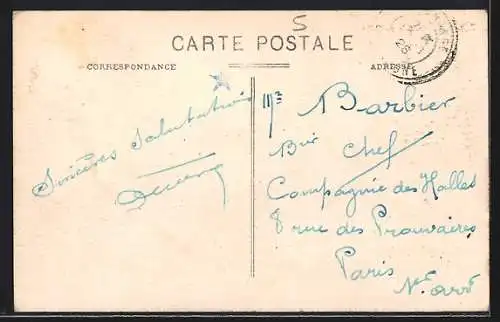 5
CARTE POSTALE
CORRESPONDANCE
ADRESSE
Sincères Salutations
Mr Barbier
Bur Chef
Compagnie des Halles
8 rue des Prouvaires
Paris
arrt